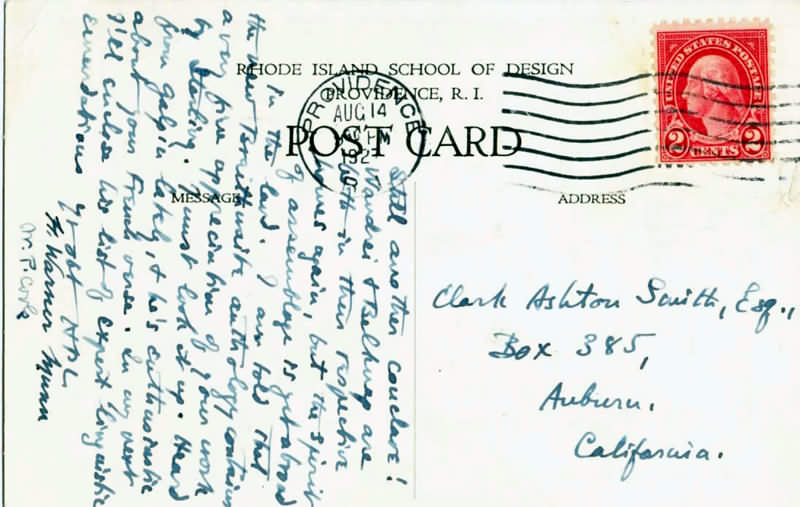 RHODE ISLAND SCHOOL OF DESIGN
PROVIDENCE, R. I.
POST CARD
MESSAGE
ADDRESS
PROVIDENCE
AUG 14
192
UNITED STATES POSTAGE
2 CENTS 2
Still another conclave!
Wandrei & Belknap are
both in their respective
homes again, but the spirit
of assemblage is yet abroad
in the land. I am told that
the new anthology contains
a very fine appreciation of your work
by Sterling. I must look it up. Heard
from Galpin lately, & he's enthusiastic
about your French verse. In my next
I'll enclose his list of expert linguistic
emendations
Yr obt HPL
H. Warner Munn
W. P. Cook
Clark Ashton Smith, Esq.,
Box 385,
Auburn,
California.